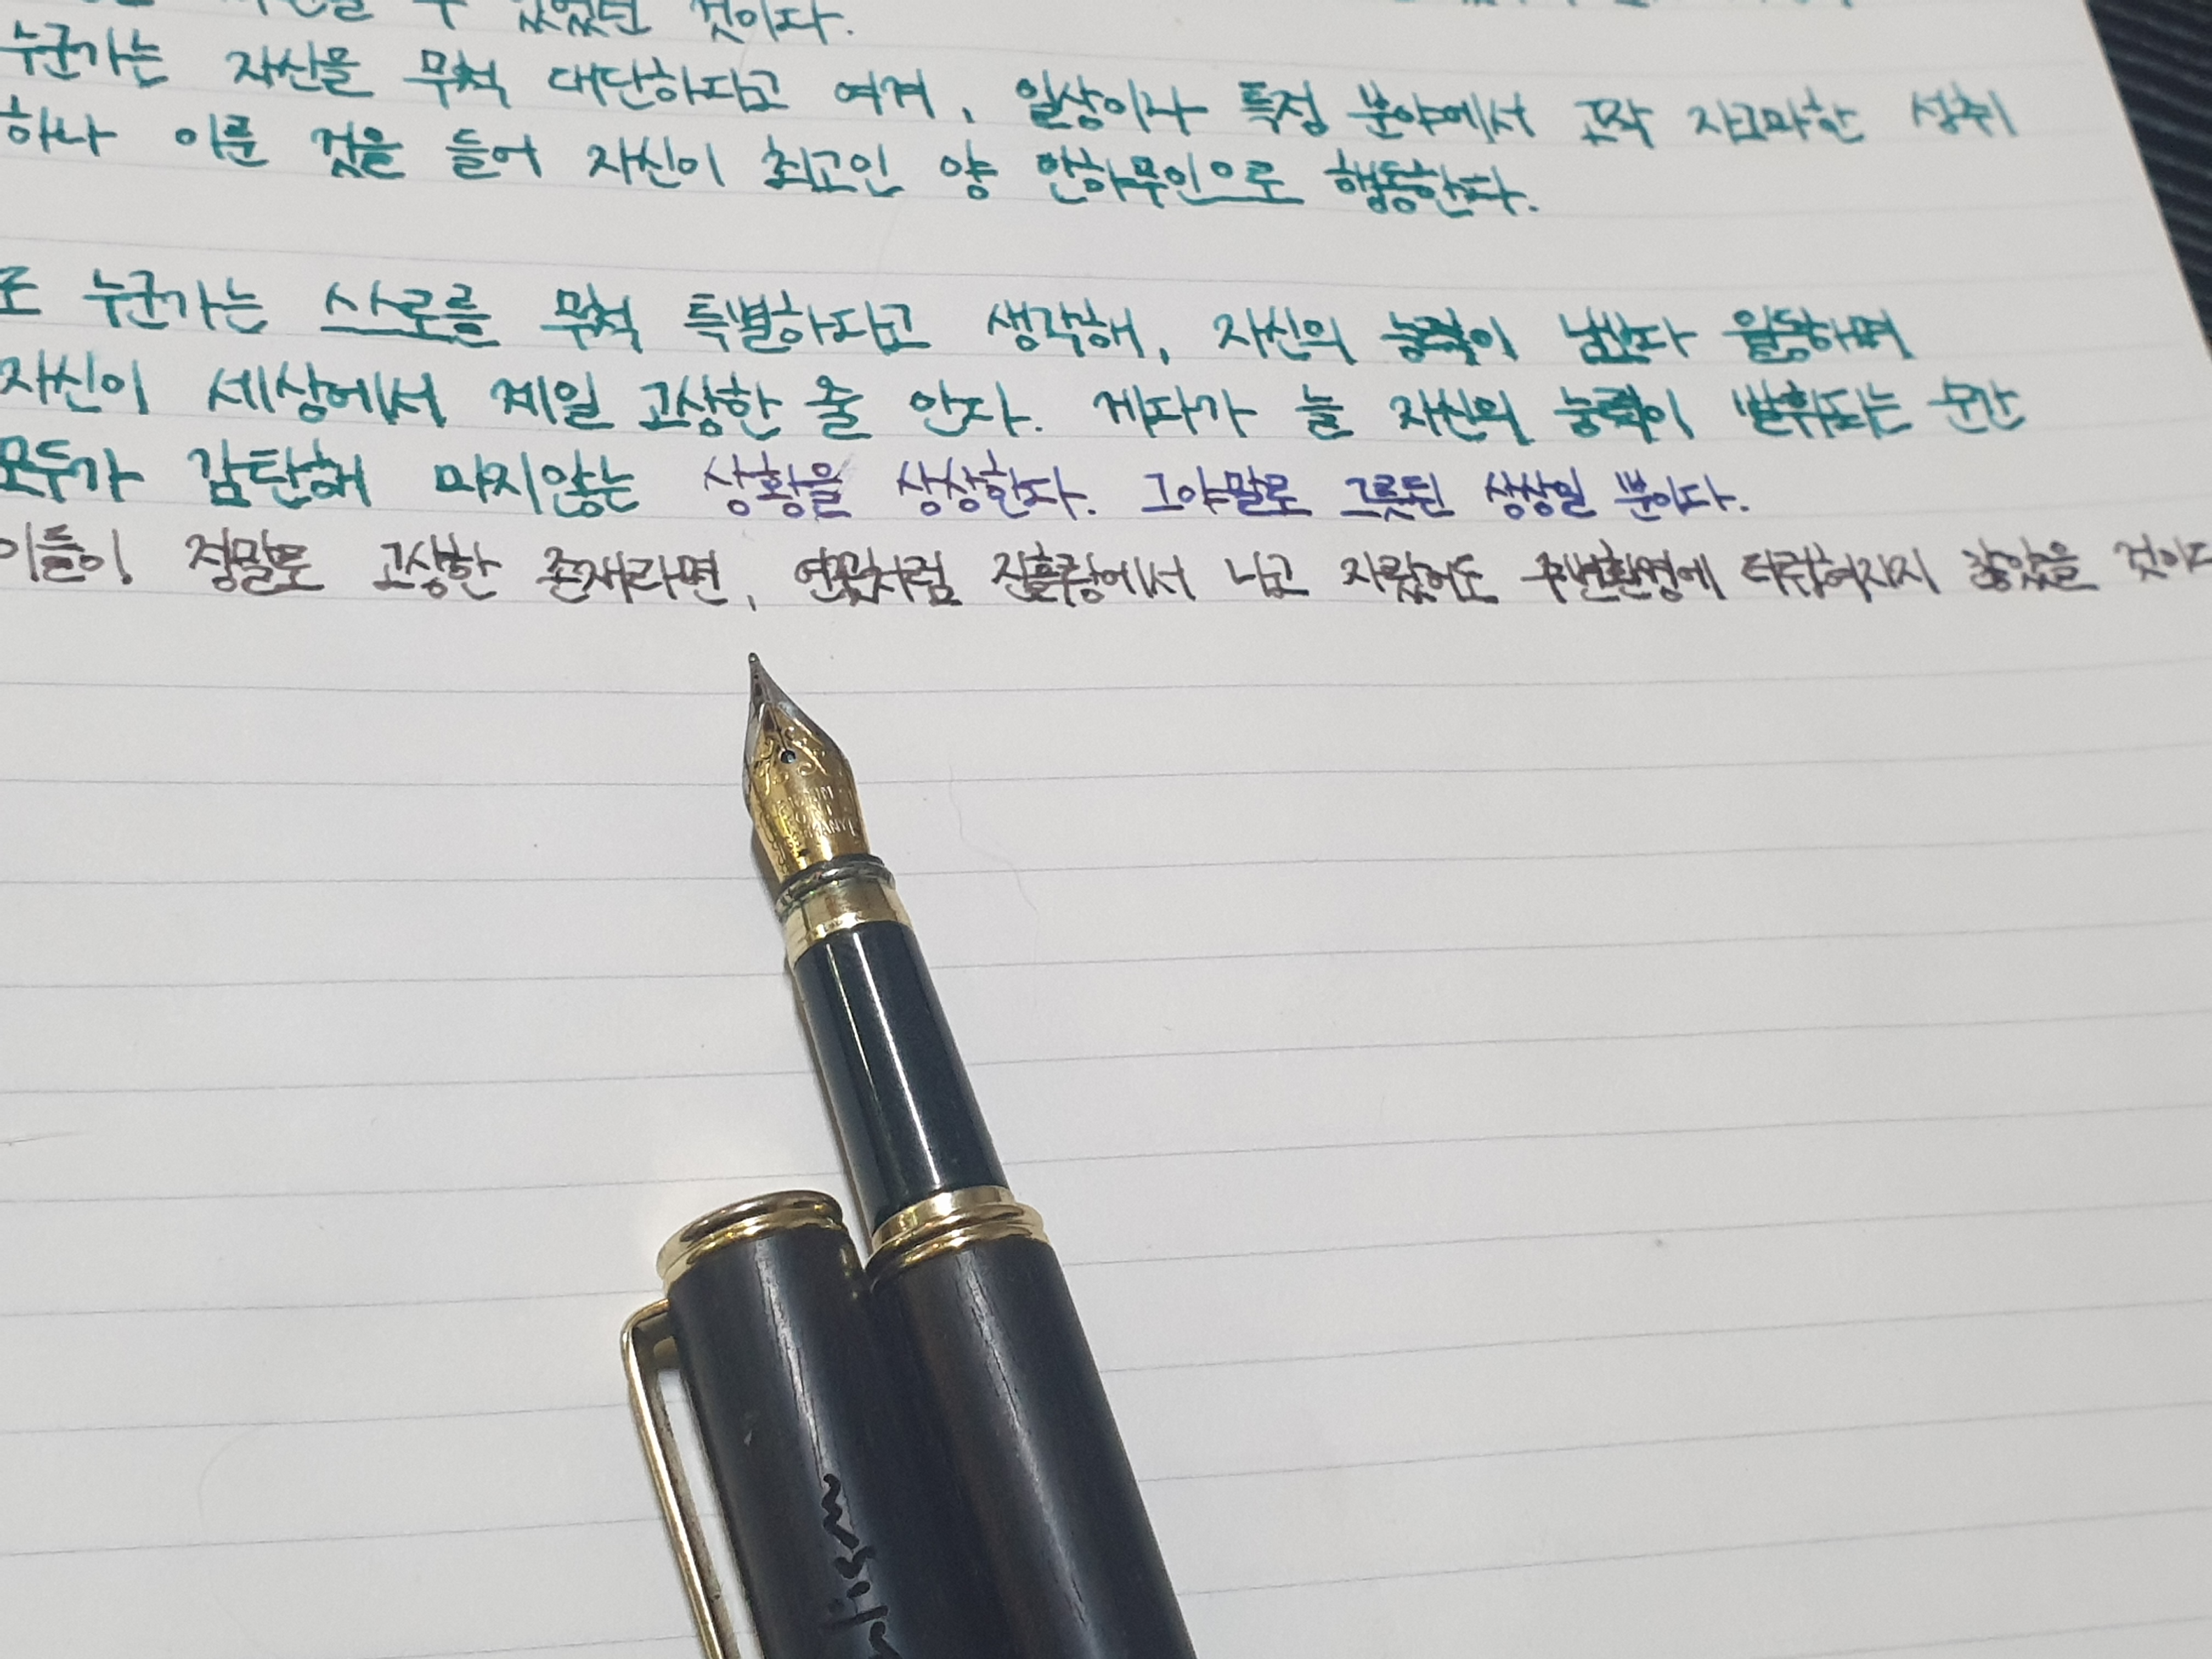 수 있었던 것이다.
누군가는 자신을 무척 대단하다고 여겨, 일상이나 특정 분야에서 고작 자그마한 성취
하나 이룬 것을 들어 자신이 최고인 양 안하무인으로 행동한다.
또 누군가는 스스로를 무척 특별하다고 생각해, 자신의 능력이 남보다 월등하며
자신이 세상에서 제일 고상한 줄 안다. 게다가 늘 자신의 능력이 발휘되는 순간
모두가 감탄해 마지않는 상황을 상상한다. 그야말로 그릇된 상상일 뿐이다.
이들이 정말로 고상한 존재라면, 연꽃처럼 진흙탕에서 나고 자랐어도 주변환경에 더럽혀지지 않았을 것이다
IRIDIUM
POINT
GERMANY